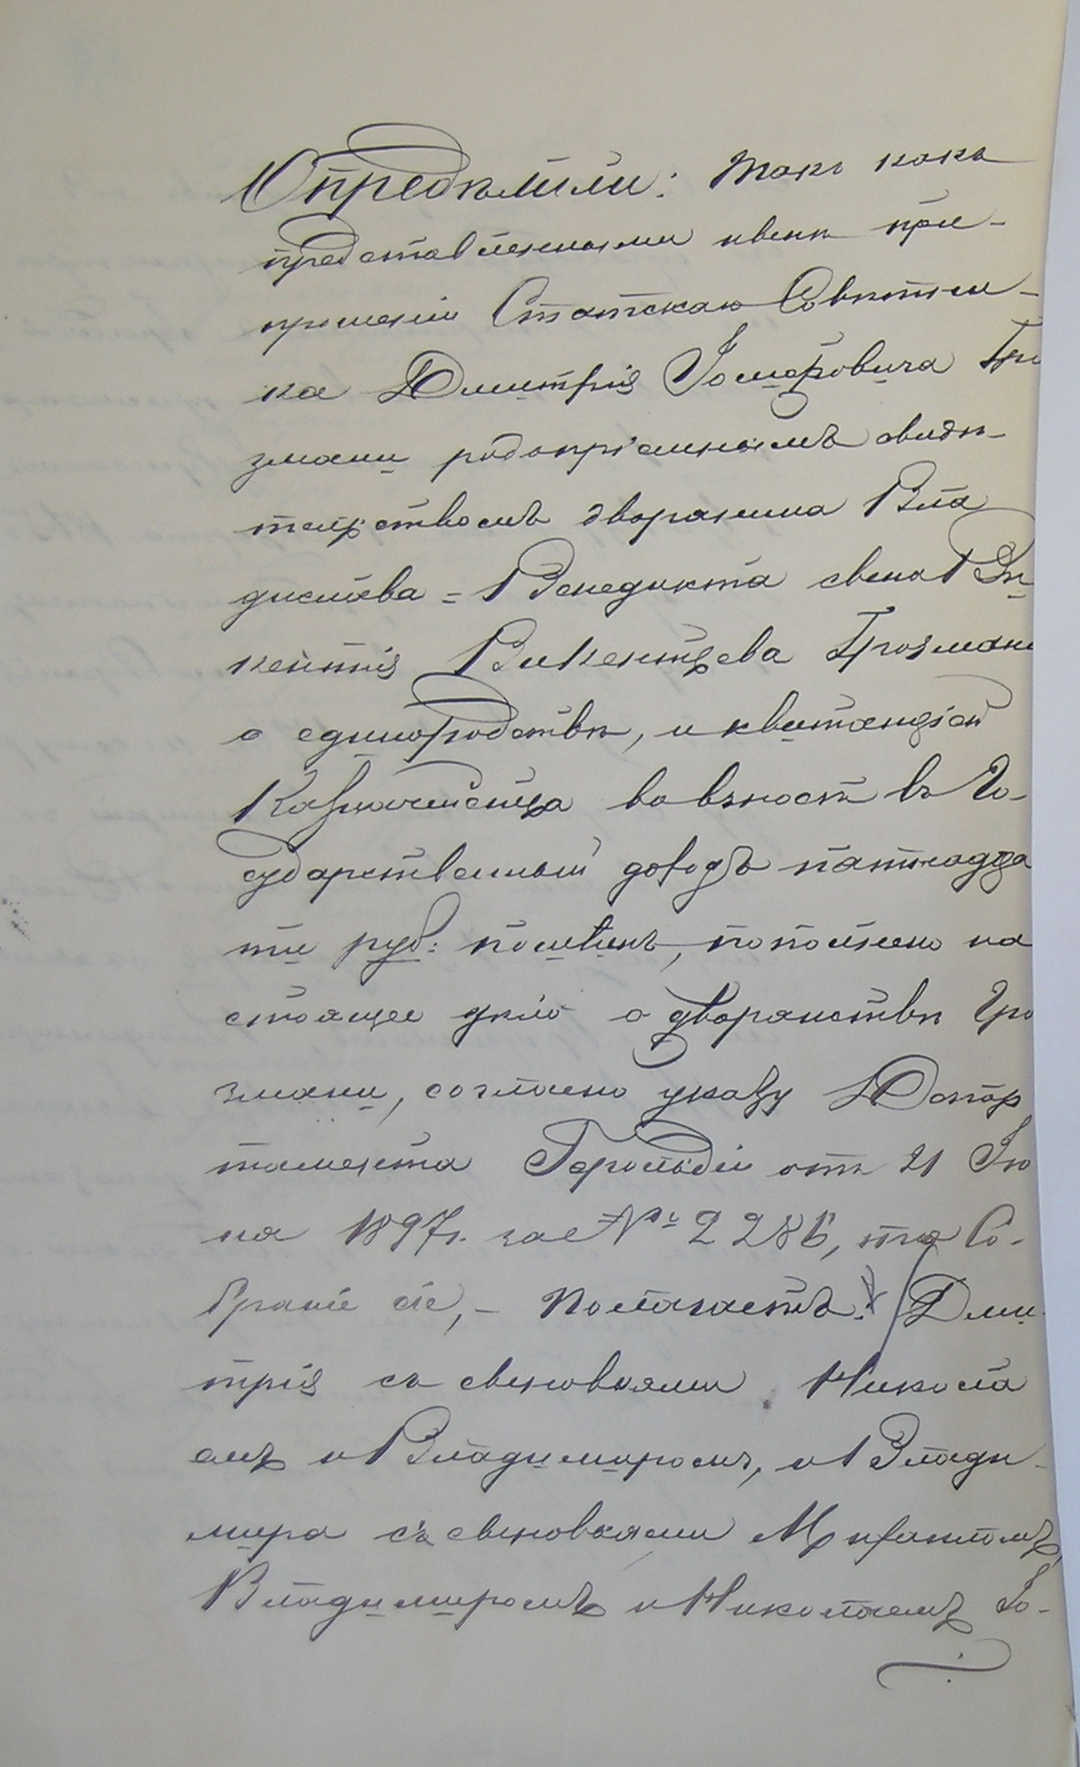 Опредѣлили: такъ какъ
представленными нынѣ при
прошеніи Статскаго Совѣтни-
ка Дмитрія Іосифовича Гро
змани родопріемнымъ свидѣ-
тельствомъ дворянина Вла
дислава-Венедикта сына Вин
кентія Викентьева Грозмани
о единородствѣ, и квитанціей
Казначейства во взносѣ въ Го-
сударственный доходъ пятнадца
ти руб: пошлинъ, пополнено на
стоящее дѣло о дворянствѣ Гро
змани, согласно указу Депар
тамента Герольдіи отъ 21 Ію
ня 1897г. за № 2286, то Со-
браніе сіе, - полагаетъ: Дми
трія съ сыновьями Никола
емъ и Владимиромъ, и Влади-
мира съ сыновьями
Владимиромъ и Николаемъ Іо-